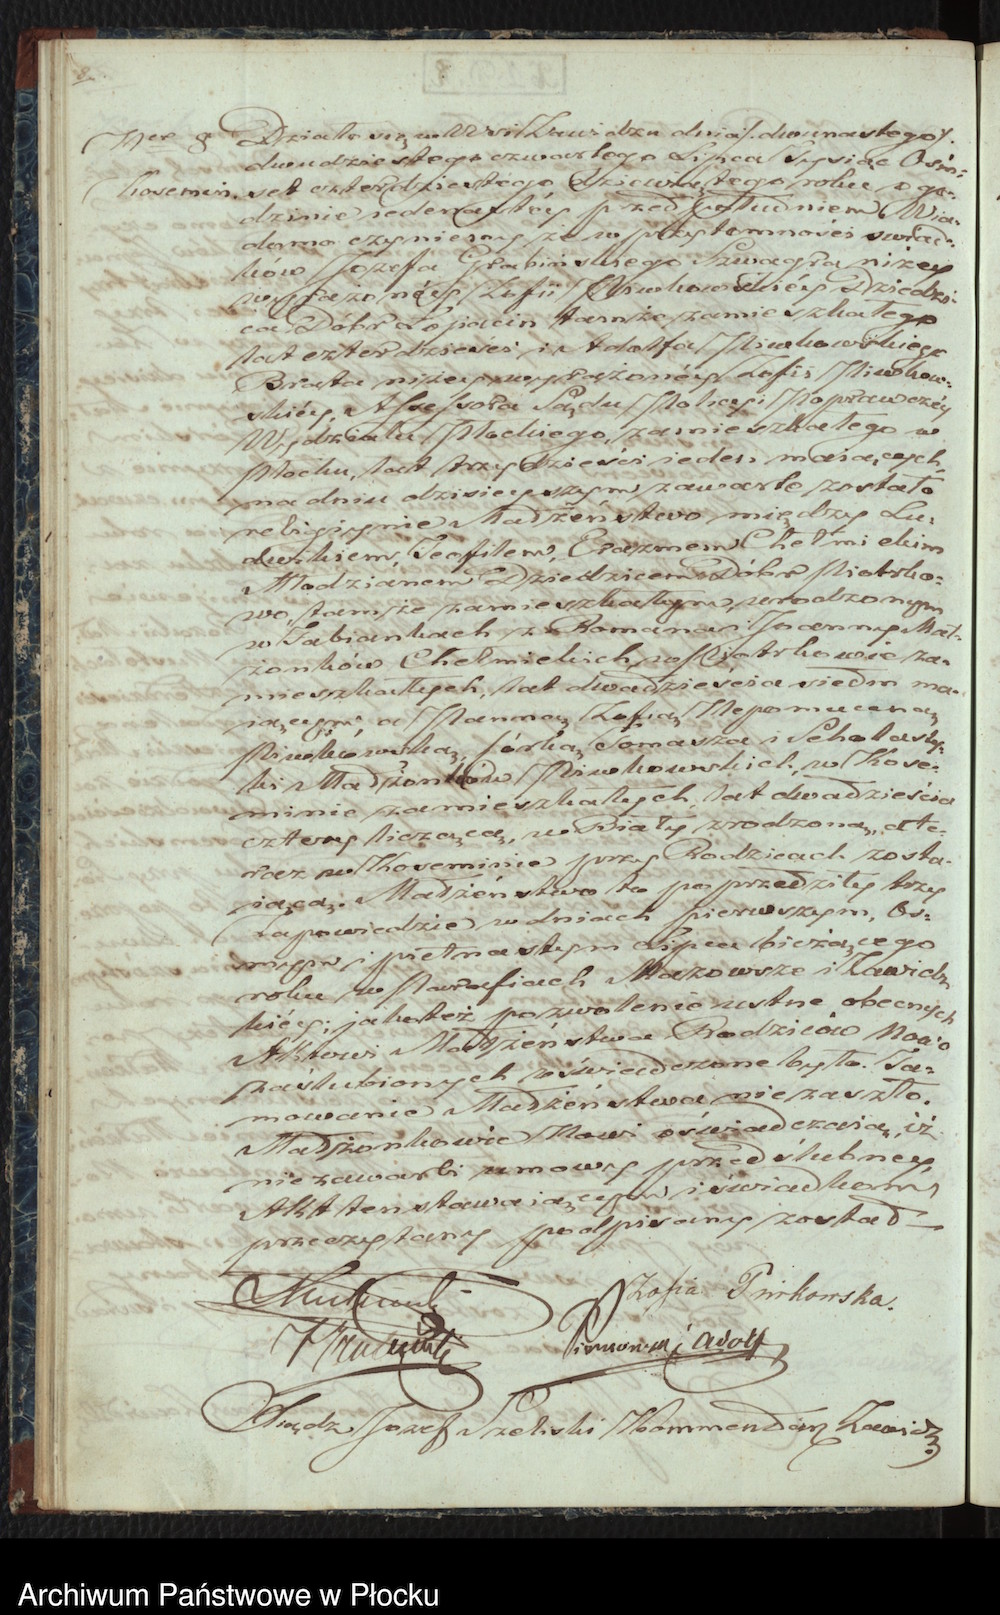 8
Ner 8 Działo się we Wsi Zawidzu dnia /. dwunastego /.
dwudziestego czwartego Lipca Tysiąc Ośm:
Kosemin. set czterdziestego dziewiątego roku o go:
dzinie jedenastey przed południem Wia:
domo czyniemy że w przytomności świad:
ków Jozefa Głabińskiego Szwagra niżey
wyrażonéy Zofii Piwkowskiéy Dziedzi:
ca Dóbr Łojacin tamże zamieszkałego
lat czterdzieści i Adolfa Piwkowskiego
Brata niżey wyrażonéy Zofii Piwkow:
skiéy, Assessora Sądu Policyi Poprawczéy
Wydziału Płockiego, zamieszkałego w
Płocku, lat trzydzieści ieden maiących,
na dniu dzisieyszym zawarte zostało
religiyne Małżeństwo między Lu:
dwikiem, Teofilem, Erazmem Chełmickim
Młodzianem Dziedzicem Dóbr Piotrko:
wo, tamże zamieszkałym, urodzonym
w Fabiankach z Romana i Joanny Mał:
żonków Chełmickich, w Piotrkowie za:
mieszkałych, lat dwadzieścia siedm ma:
iącym a Panną Zofią Nepomuceną
Piwkowską, córką Tomasza i Scholasty:
ki Małżonków Piwkowskich, w Kose:
minie zamieszkałych, lat dwadzieścia
cztery liczącą, w Biały zrodzoną, a te:
raz w Koseminie przy Rodzicach zosta:
iącą. Małżeństwo to poprzedziły trzy
Zapowiedzie w dniach pierwszym, Os:
mym i piętnastym Lipca bieżącego
roku w Parafiach Mazowsze i Zawidz
kiéy; jakoteż pozwolenie ustne obecnych
Aktowi Małżeństwa Rodziców Nowo
zaślubionych oświadczone było. Ta:
mowanie Małżeństwa nie zaszło.
Małżonkowie Nowi oświadczaią, iż
nie zawarli umowy przedślubney,
Akt ten stawaiącym i świadkom
przeczytany podpisany został
Zofia Piwkowska.
Piwkowski Adolf
Xiądz Jozef Szelski Kommendarz Zawidz.
Archiwum Państwowe w Płocku